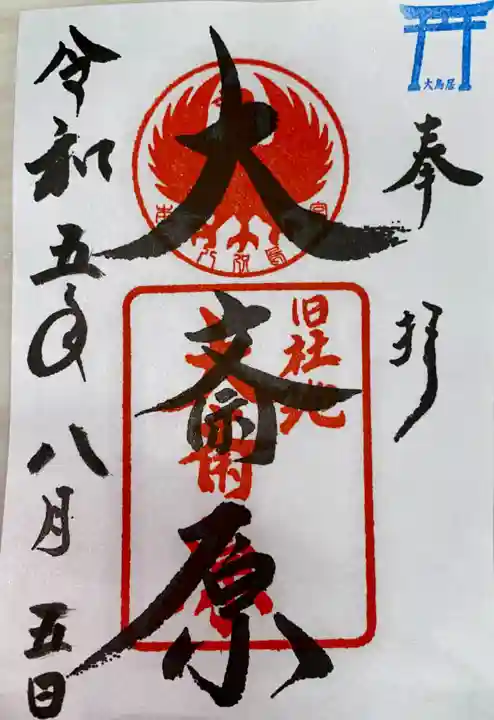 奉拝
大斎原
旧社地
大斎原
令和五年八月五日
大鳥居